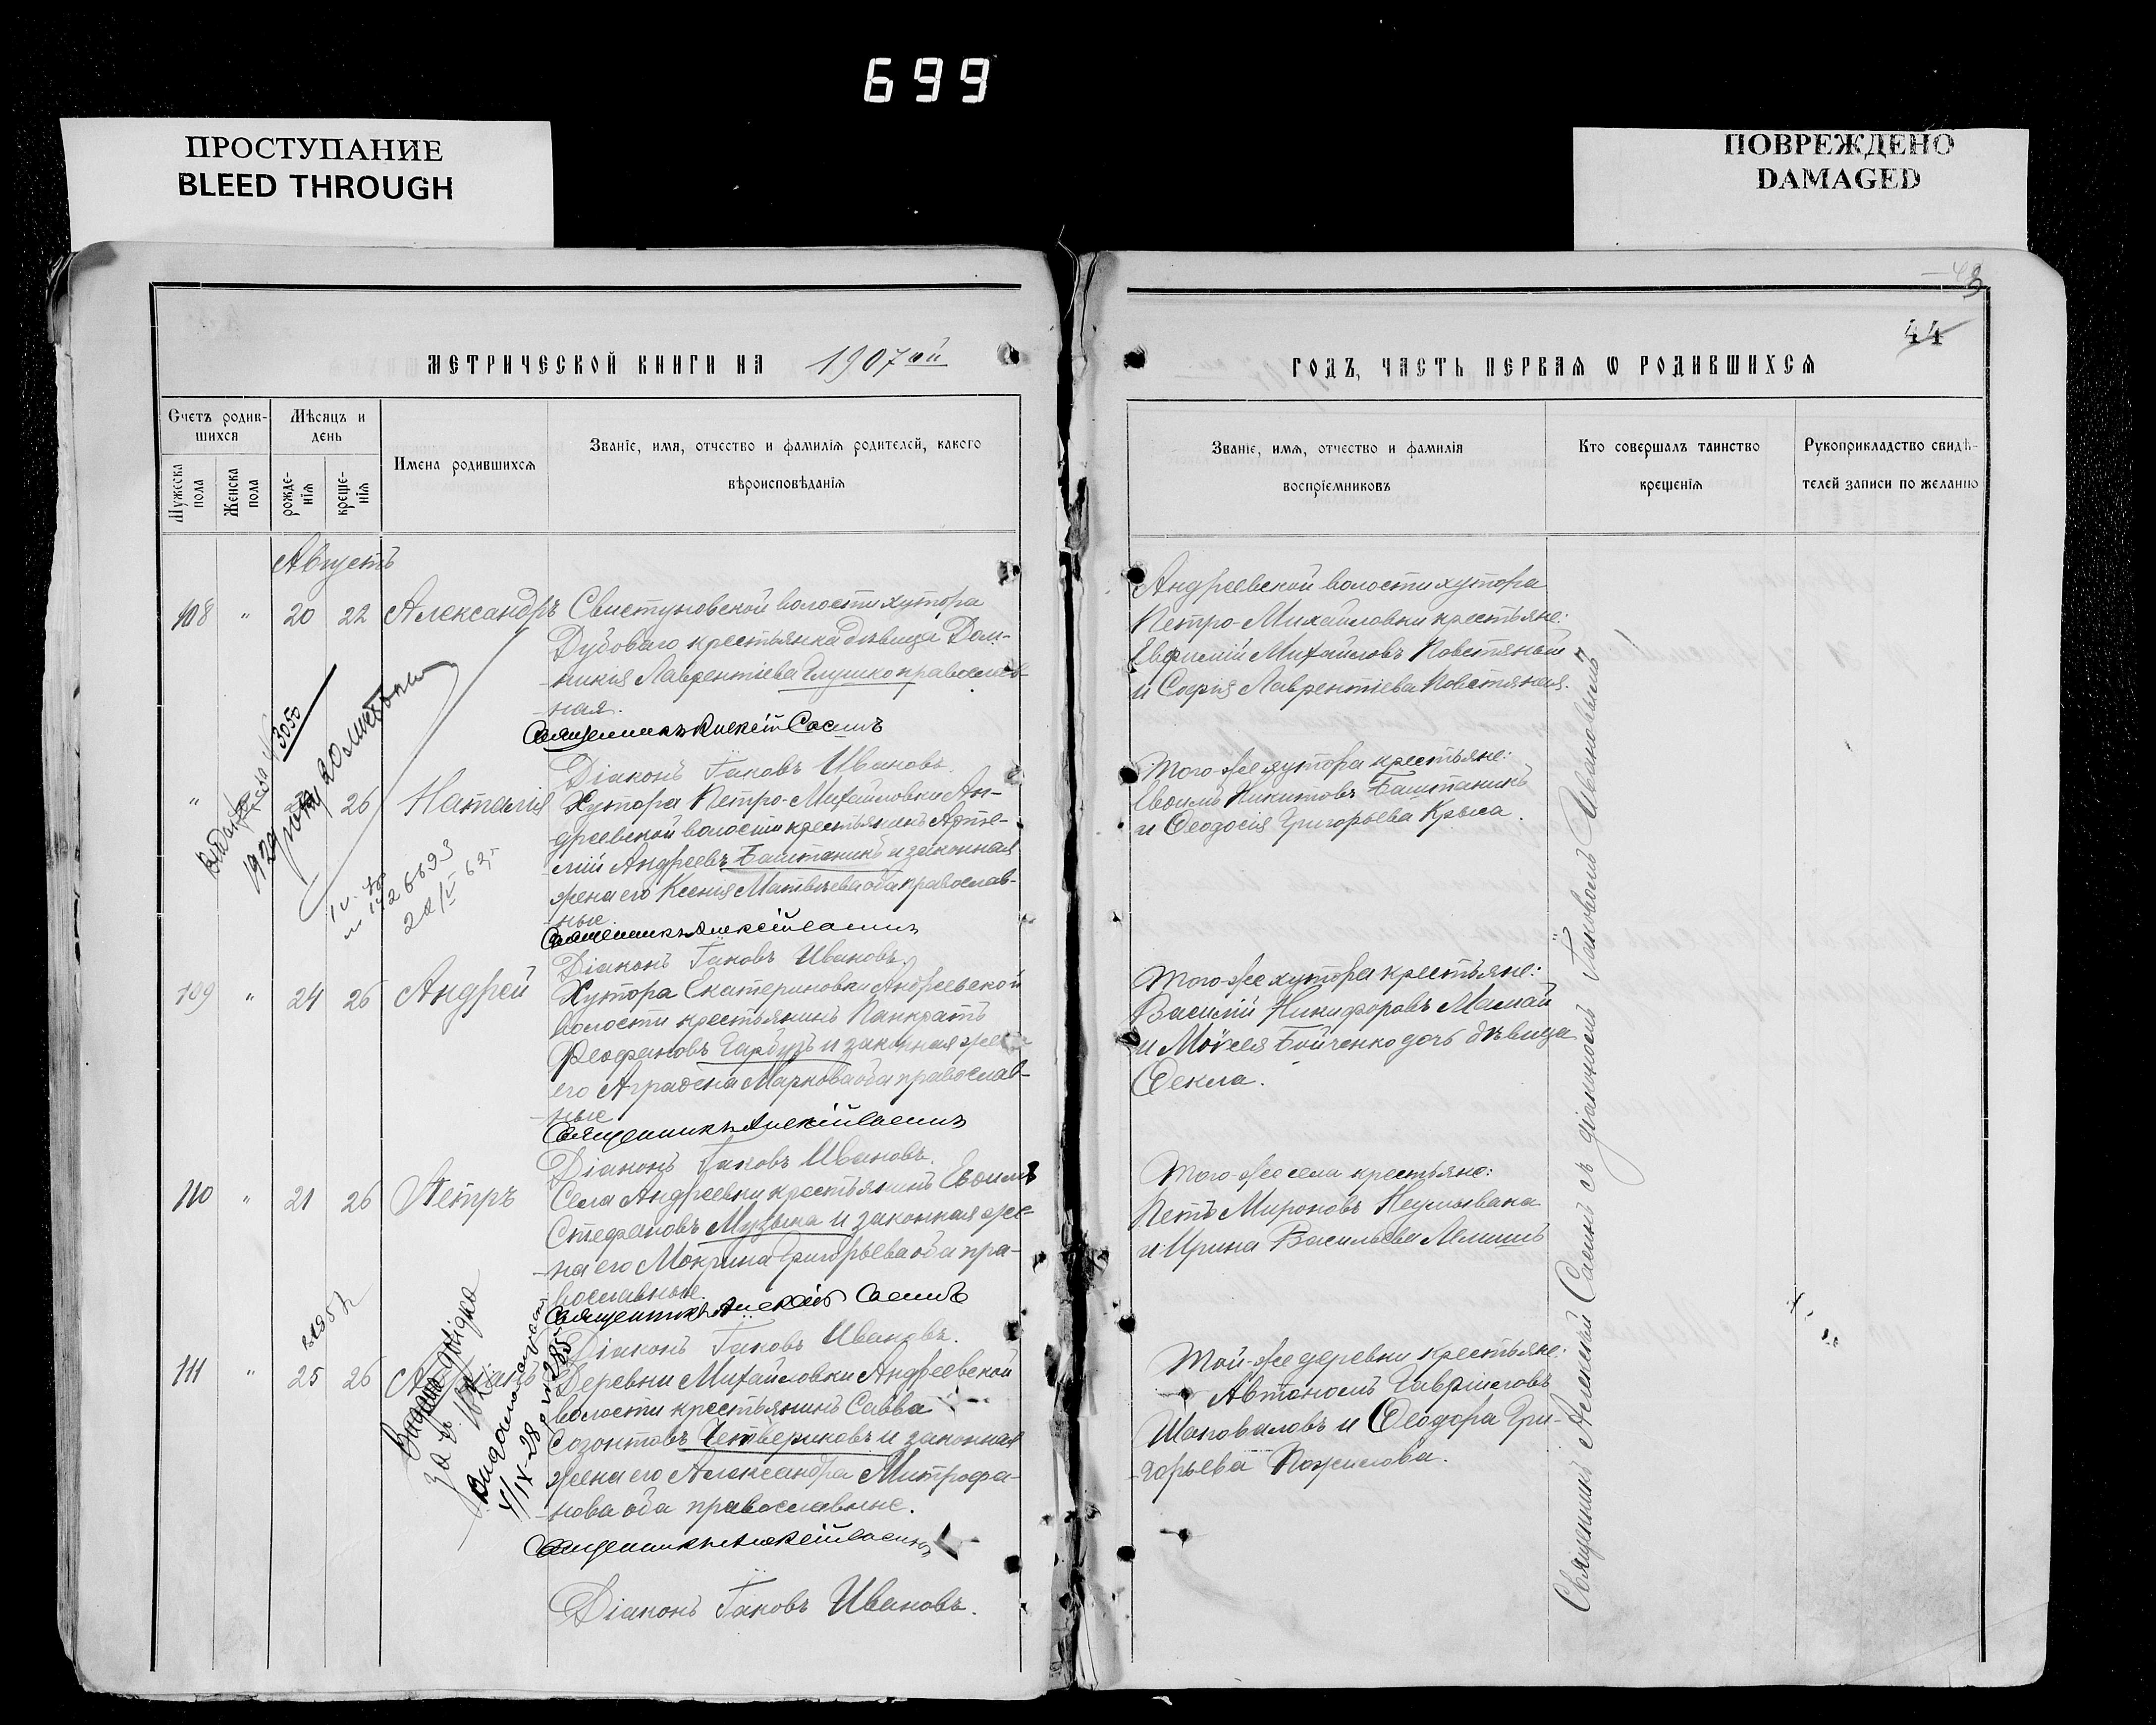 699
ПРОСТУПАНИЕ
BLEED THROUGH
ПОВРЕЖДЕНО
DAMAGED
44
МЕТРИЧЕСКОЙ КНИГИ НА 1907ой
ГОДЪ, ЧАСТЬ ПЕРВАЯ Ѡ РОДИВШИХСЯ
Счетъ родив-
шихся
Мужеска
пола
Женска
пола
Мѣсяцъ и
день
рожде-
нія
креще-
нія
Имена родившихся
Званіе, имя, отчество и фамилія родителей, какого
вѣроисповѣданія
Званіе, имя, отчество и фамилія
воспріемниковъ
Кто совершалъ таинство
крещенія
Рукоприкладство свидѣ-
телей записи по желанію
Августъ
108 " 20 22 Александръ Свистуновской волости хутора
Дубоваго крестьянка дѣвица Дом-
никія Лаврентіева Глушко православ-
ная.
Священникъ Алексій Саенъ
Діаконъ Іаковъ Ивановъ.
Андреевской волости хутора
Петро-Михайловки крестьяне:
Евфимій Михайловъ Повстяный
и Софія Лаврентіева Повстяная.
" 26 Наталія Хутора Петро-Михайловки Ан-
дреевской волости крестьянинъ Арте-
мій Андреевъ Баштаникъ и законная
жена его Ксенія Матвѣева оба православ-
ные.
Священникъ Алексій Саенъ
Діаконъ Іаковъ Ивановъ.
Того-же хутора крестьяне:
Евѳимъ Никитовъ Баштаникъ
и Ѳеодосія Григорьева Крыса.
3050
1929 року
26693
109 " 24 26 Андрей Хутора Екатериновки Андреевской
волости крестьянинъ Панкратъ
Феофановъ Гарбузъ и законная же-
его Агрипена Маркова оба православ-
ные
Священникъ Алексій Саенъ
Діаконъ Іаковъ Ивановъ.
Того-же хутора крестьяне:
Василій Никифоровъ Мамай
и Моѵсея Бойченко дочь дѣвица
Ѳекла.
110 " 21 26 Петръ Села Андреевки крестьянинъ Евѳимъ
Стефановъ Музыка и законная же-
на его Мокрина Григорьева оба пра-
вославные.
Священникъ Алексій Саенъ
Діаконъ Іаковъ Ивановъ.
Того-же села крестьяне:
Петъ Мироновъ Неумывака
и Ирина Васильева
111 " 25 26 Деревни Михайловки Андреевской
волости крестьянинъ Савва
Созонтовъ Четвериковъ и законная
жена его Александра Митрофа-
нова оба православные.
Священникъ Алексій Саенъ
Діаконъ Іаковъ Ивановъ.
Той-же деревни крестьяне:
Автономъ Гавриловъ
Шаповаловъ и Ѳеодора Гри-
горьева Пожилова.
Священникъ Алексій Саенъ съ діакономъ Іаковомъ Ивановымъ